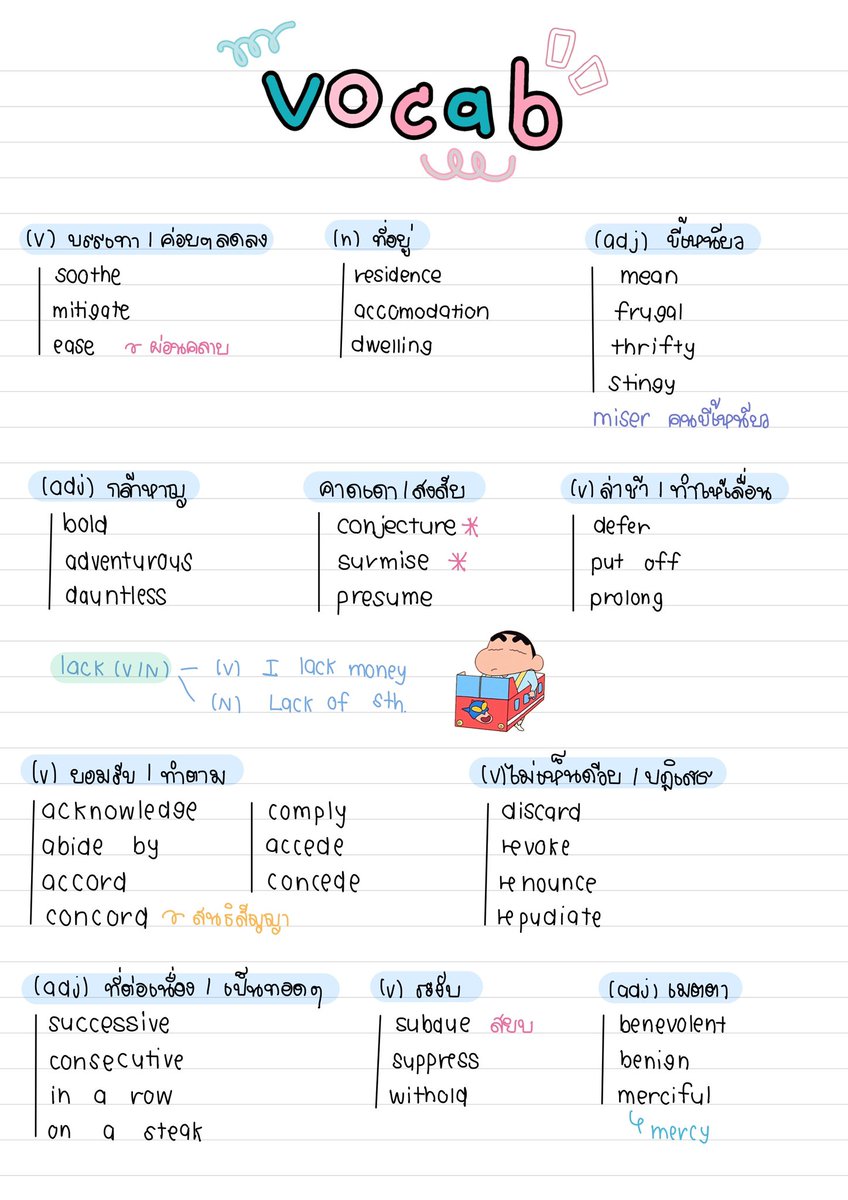 vocab
(v) บรรเทา / ค่อยๆลดลง
soothe
mitigate
ease ~ ผ่อนคลาย
(n) ที่อยู่
residence
accomodation
dwelling
(adj) ขี้เหนียว
mean
frugal
thrifty
stingy
miser คนขี้เหนียว
(adj) กล้าหาญ
bold
adventurous
dauntless
คาดเดา / สงสัย
conjecture *
surmise *
presume
(v) ล่าช้า / ทำให้เลื่อน
defer
put off
prolong
lack (V/N) — (V) I lack money
(N) Lack of sth.
(v) ยอมรับ / ทำตาม
acknowledge
abide by
accord
concord ~ สนธิสัญญา
comply
accede
concede
(v) ไม่เห็นด้วย / ปฏิเสธ
discard
revoke
renounce
repudiate
(adj) ที่ต่อเนื่อง / เป็นทอดๆ
successive
consecutive
in a row
on a steak
(v) ระงับ
subdue สยบ
suppress
withold
(adj) เมตตา
benevolent
benign
merciful
↳ mercy